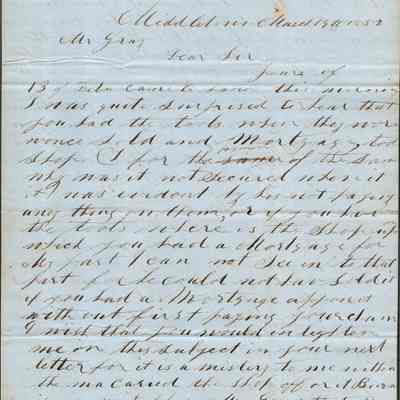 Middletown March 19th 1852
Mr Gray
Dear Sir
Yours of
13 of Feb came to hand this morning
I was quite surprised to hear that
you had the tools when they wor
wonce sold and Mortgage, too
Shop & for the same of the Sam
why was it not Secured when it
it was evident by his not paying
any thing on them, or if you have
the tools where is the Shop up
which you had a Mortgage for
My part I can not See in to that
part for he could not have Sold it
if you had a Mortgage a pon it
with out first paying your claim
I wish that you would in lighten
me on this subject in your next
letter for it is a mistery to me
the ma caried the Shop of or it Burn